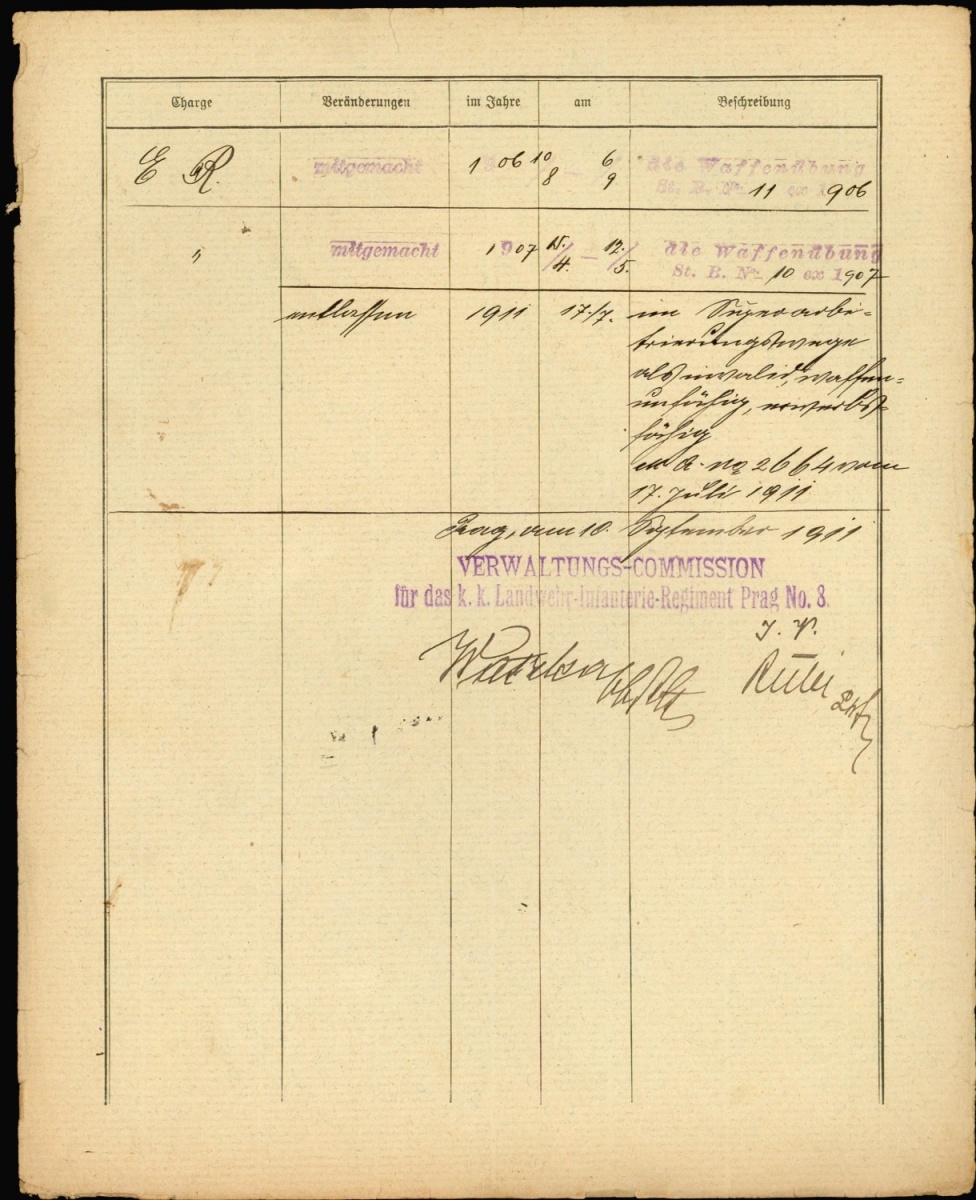 Charge Veränderungen im Jahre am Beschreibung
E R. mitgemacht 1906 10/8 – 6/9 die Waffenübung
St. B. No 11 ex 1906
" mitgemacht 1907 15./4. – 12./5. die Waffenübung
St. B. No 10 ex 1907
entlassen 1911 17./7. im Superarbi-
trierungswege
als invalid, waffen-
unfähig, erwerbs-
fähig
No 2664 vom
17. Juli 1911
Prag, am 10. September 1911
VERWALTUNGS-COMMISSION
für das k. k. Landwehr-Infanterie-Regiment Prag No. 8.